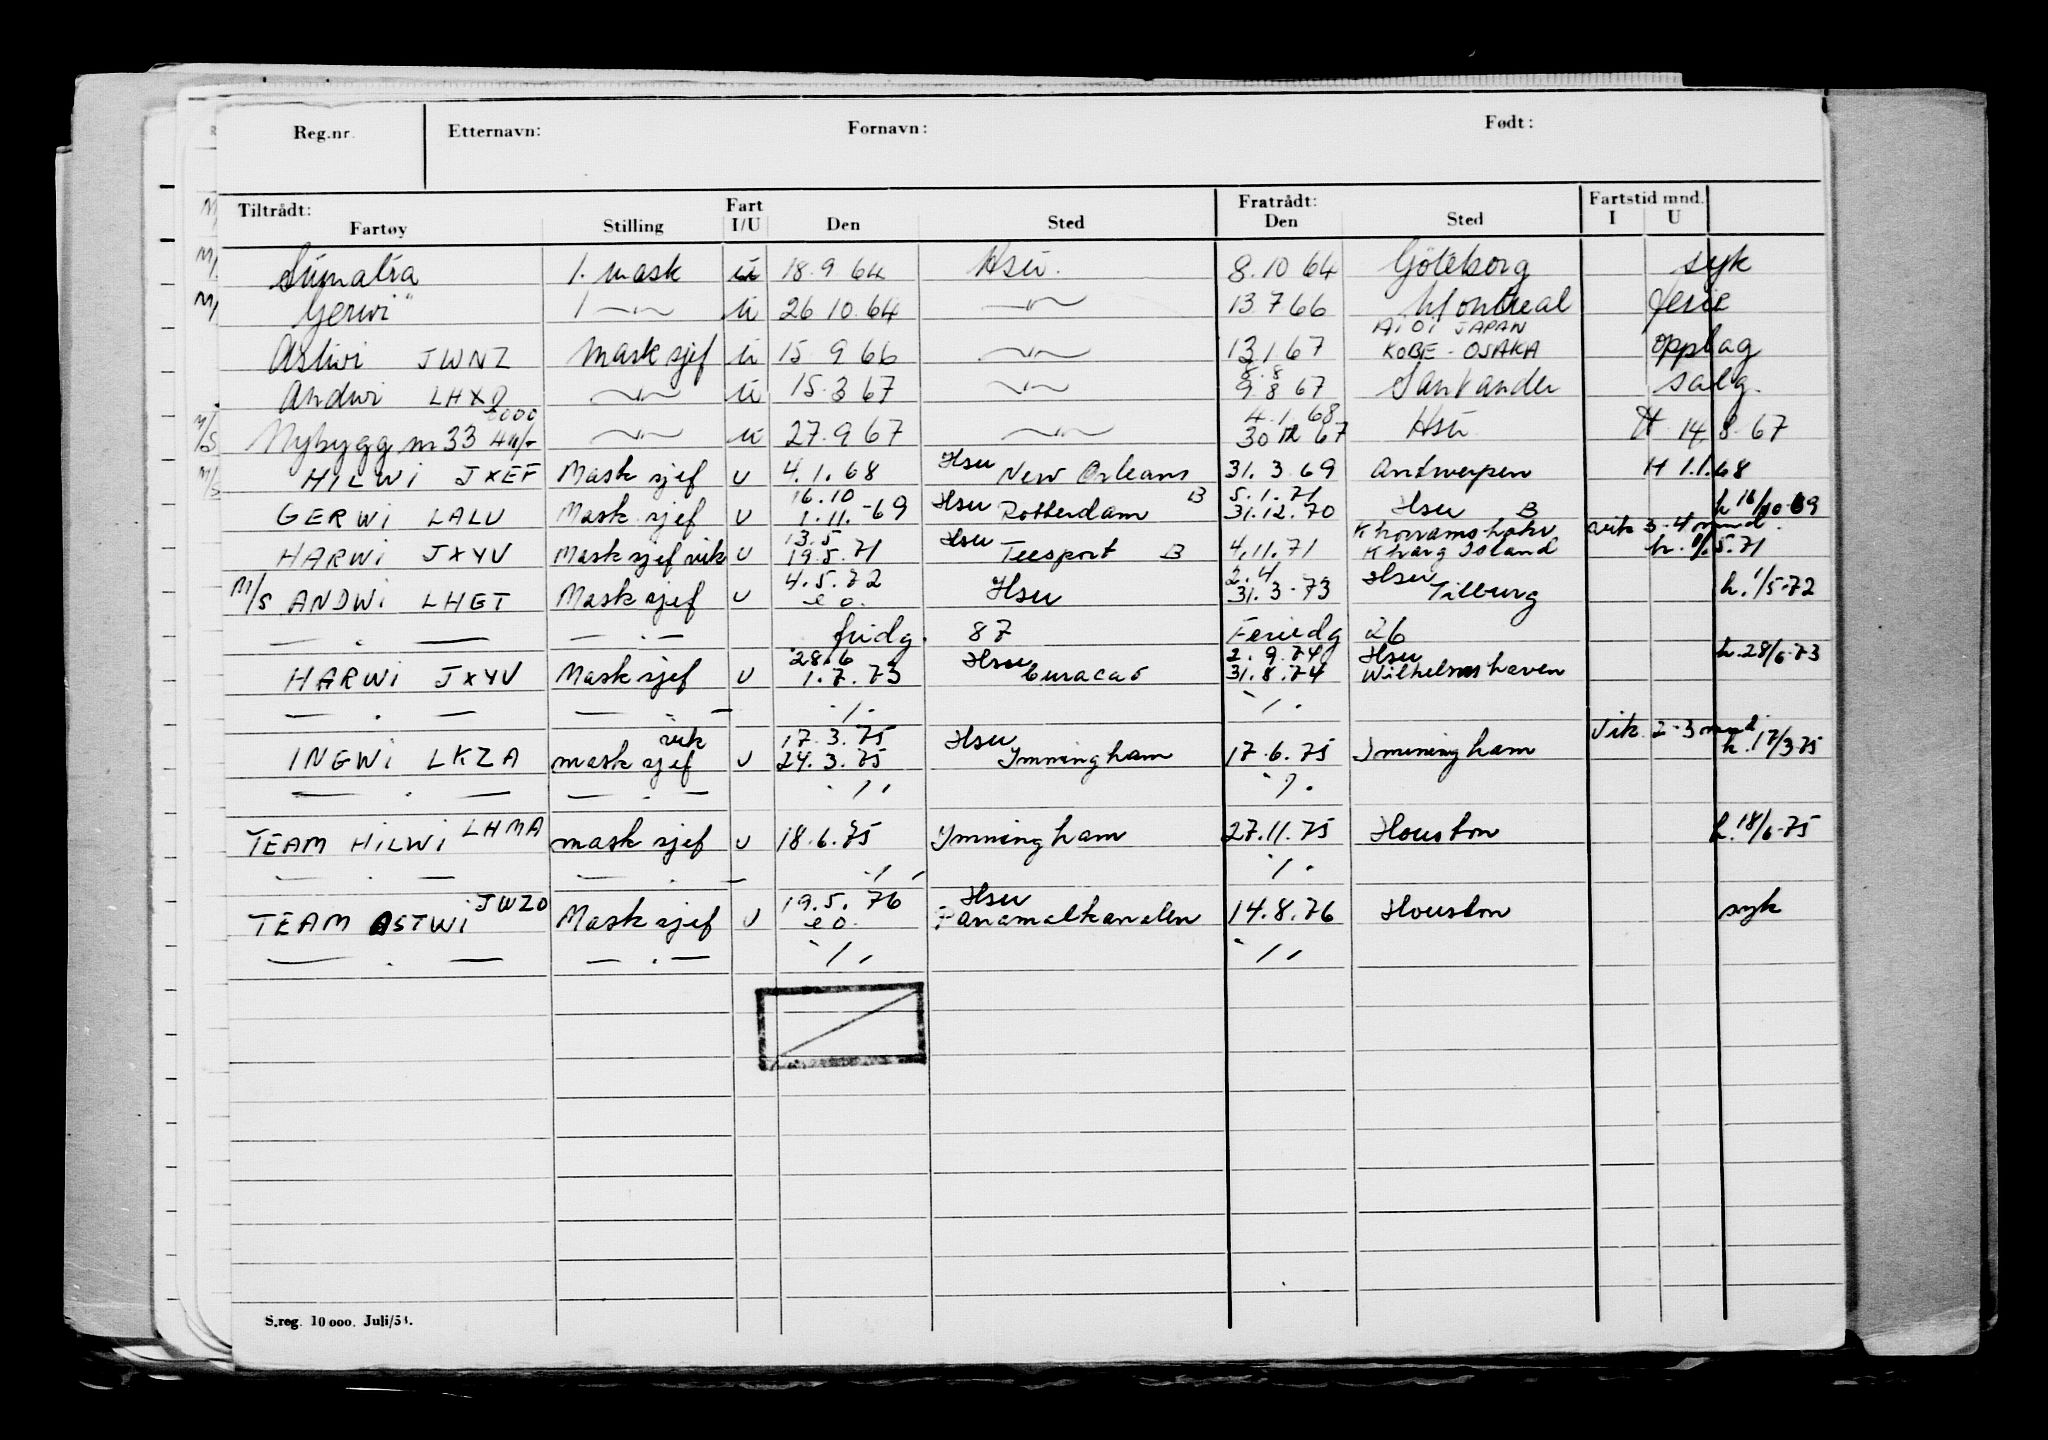 Reg.nr. Etternavn: Fornavn: Født:
Tiltrådt: Fart Fratrådt: Fartstid mnd.
Fartøy Stilling I/U Den Sted Den Sted I U
M/ Sumatra 1. mask u 18.9 64 Hsu. 8.10 64 Göteborg syk
M/ Gerwi" 1 —"— u 26 10.64 —"— 13 7 66 Montreal ferie
AIOI JAPAN
Astwi JWNZ Mask sjef u 15 9 66 —"— 13 1 67 KOBE - OSAKA opplag
8.8
Andwi LHXO —"— u 15.3 67 —"— 9 8 67 Santander salg.
6000 4.1.68
M/S Nybygg nr 33 —"— u 27.9 67 —"— 30 12 67 Hsu H 14.8.67
M/S HILWI JXEF Mask sjef U 4.1.68 Hsu New Orleans 31.3.69 Antwerpen H 1.1.68
16.10 5.1.71
GERWI LALU Mask sjef U 1.11.-69 Hsu Rotterdam B 31.12.70 Hsu B h 16/10-69
13.5 Khorramshahr vik 3-4 mnd.
HARWI JXYV Mask sjef vik U 19.5.71 Hsu Teesport B 4.11.71 Kharg Island h. /5.71
4.5.72 2.4 Hsu
M/S ANDWI LHGT Mask sjef U e o. Hsu 31.3-73 Tilburg h. 1/5-72
— . — — . — fridg. 87 Feriedg 26
28.6 Hsu 2.9.74 Hsu h. 28/6-73
HARWI JXYV Mask sjef U 1.7.73 Curacao 31.8.74 Wilhelmshaven
— . — — . — ./. ./.
vik 17.3.75 Hsu Vik. 2-3 mnd.
INGWI LKZA mask sjef U 24.3.75 Immingham 17.6.75 Immingham h. 17/3-75
— . — — . — ./. ./.
TEAM HILWI LHMA mask sjef U 18.6.75 Immingham 27.11.75 Houston h. 18/6-75
— . — — . — ./. ./.
JWZO 19.5.76 Hsu
TEAM ASTWI Mask sjef U e o. Panamakanalen 14.8.76 Houston syk
— . — — . — ./. ./.
S.reg. 10 000. Juli/51.